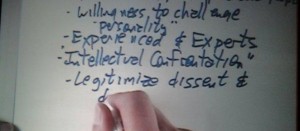 - Willingness to challenge
personality
- Experienced & Experts
"Intellectual Confrontation"
- Legitimize dissent &
d